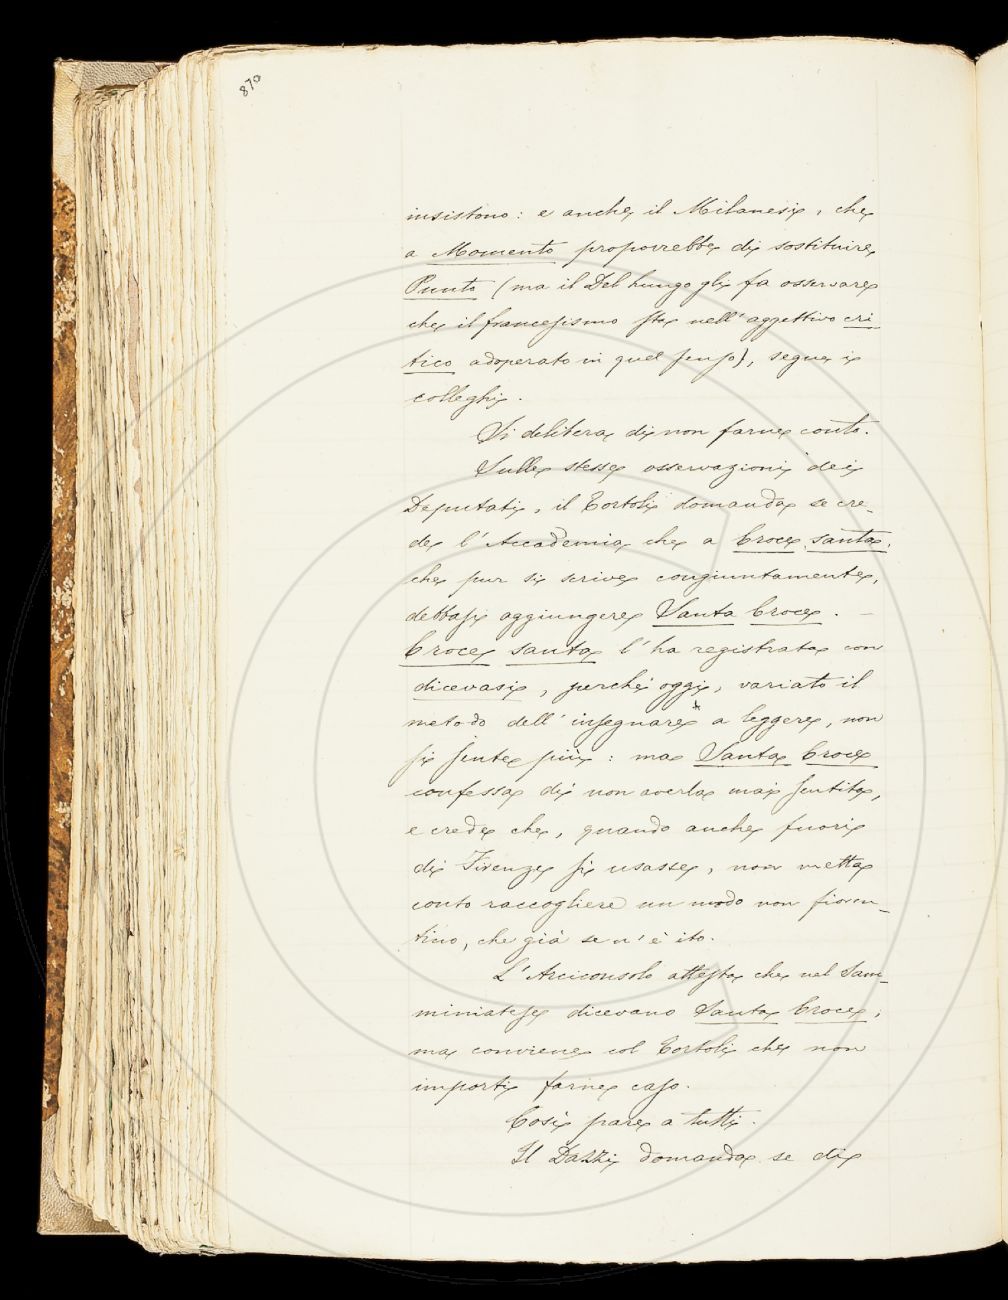 870
insistono: e anche il Milanesi, che
a Momento proporrebbe di sostituire
Punto (ma il Del Lungo gli fa osservare
che il francesismo sta nell'aggettivo cri
tico adoperato in quel senso), segue i
colleghi.
Si delibera di non farne conto.
Sulle stesse osservazioni dei
Deputati, il Tortoli domanda se cre_
de l'Accademia che a Croce santa,
che pur si scrive congiuntamente,
debbasi aggiungere Santa Croce. _
Croce santa l'ha registrata con
dicevasi, perchè oggi, variato il
metodo dell'insegnare a leggere, non
si sente più: ma Santa Croce
confessa di non averla mai sentita,
e crede che, quando anche fuori
di Firenze si usasse, non metta
conto raccogliere un modo non fioren_
tino, che già se n'è ito.
L'Arciconsolo attesta che nel Sam_
miniatese dicevano Santa Croce,
ma conviene col Tortoli che non
importi farne caso.
Così pare a tutti.
Il Dazzi domanda se di